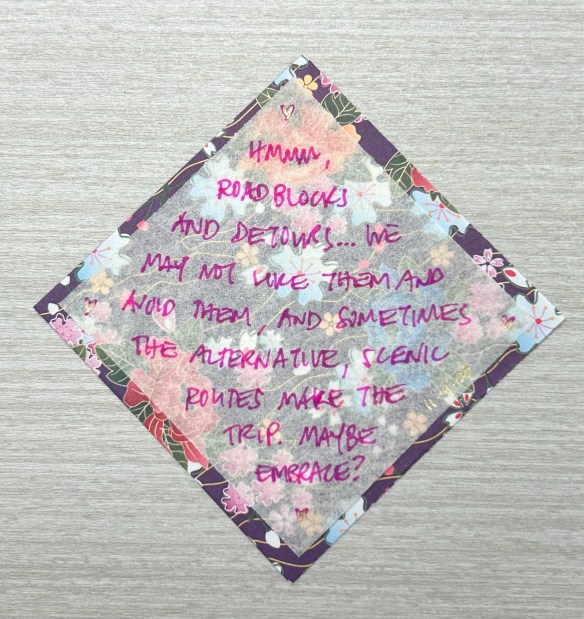 HMMM,
ROADBLOCKS
AND DETOURS... WE
MAY NOT LIKE THEM AND
AVOID THEM, AND SOMETIMES
THE ALTERNATIVE, SCENIC
ROUTES MAKE THE
TRIP. MAYBE
EMBRACE?